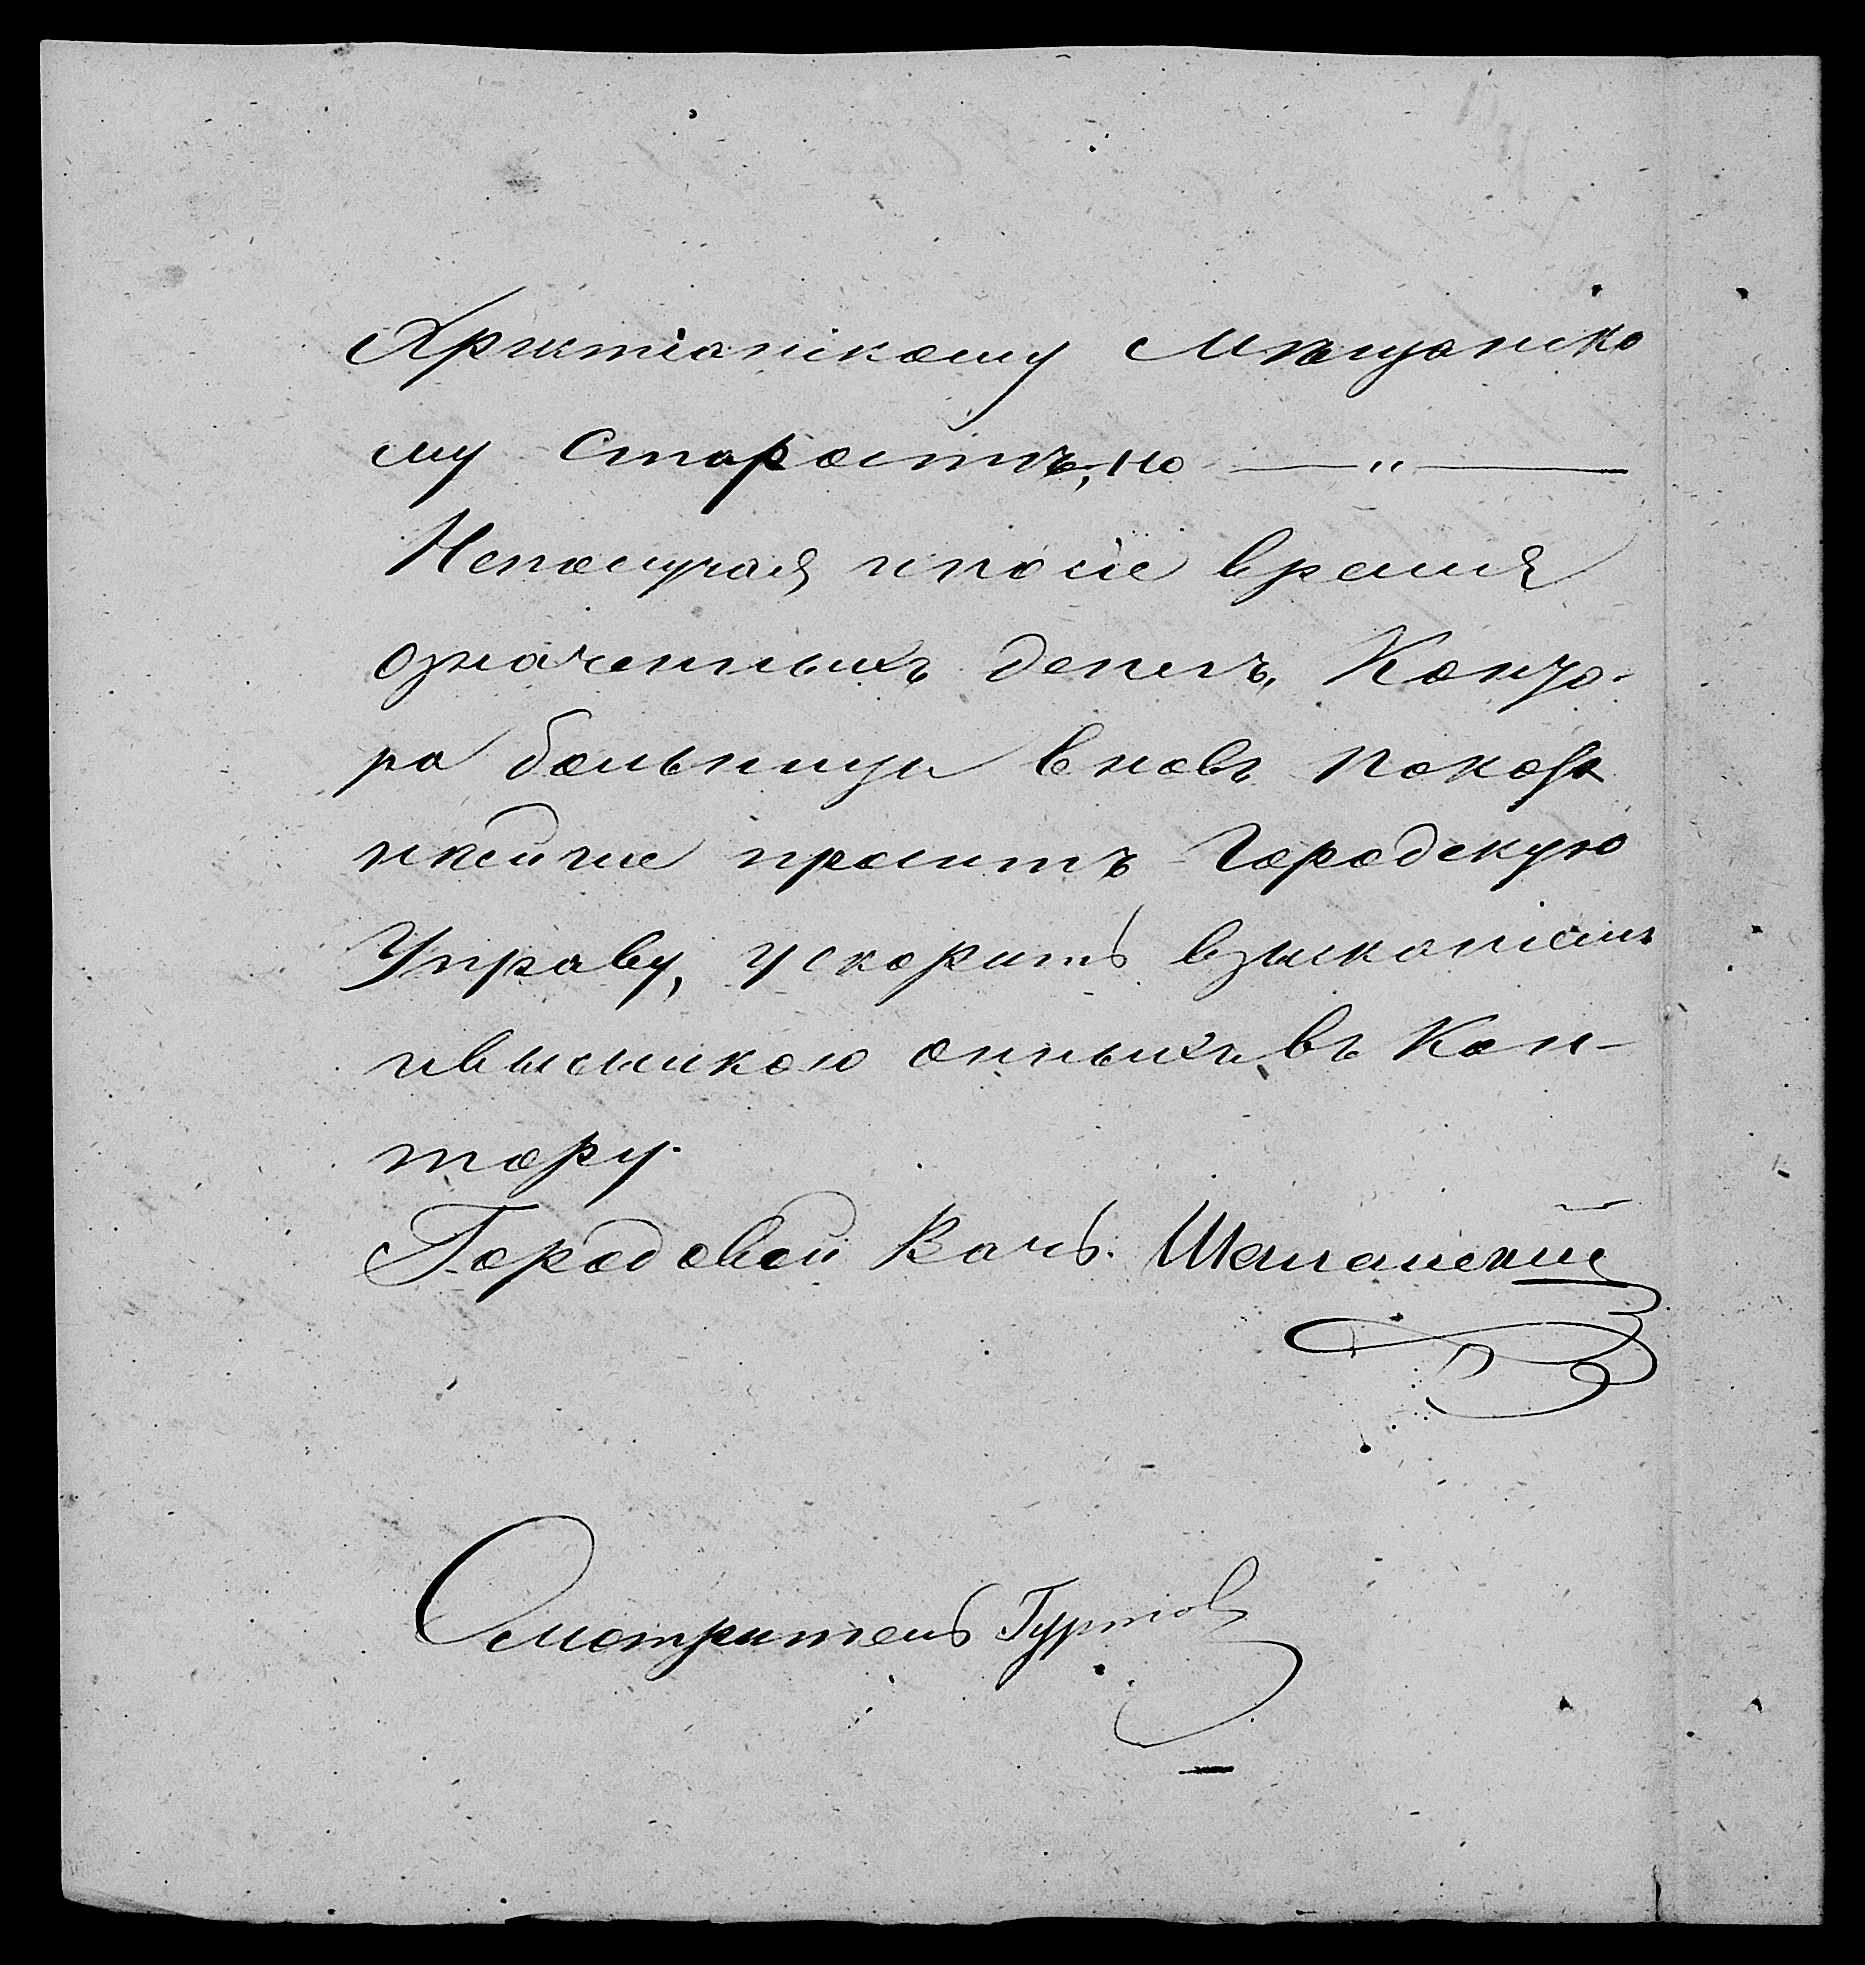 Христіанскому Мѣщанско
му Старостѣ, но — " —
Неполучая ипосіе время
означенныхъ денегъ, Конто-
ра больницы вновь покор
нѣйше проситъ Городскую
Управу, ускорить взысканіемъ
ивысылкою онныхъ въ Кон-
тору.
Городовой Врачъ
Смотритель Гуртов